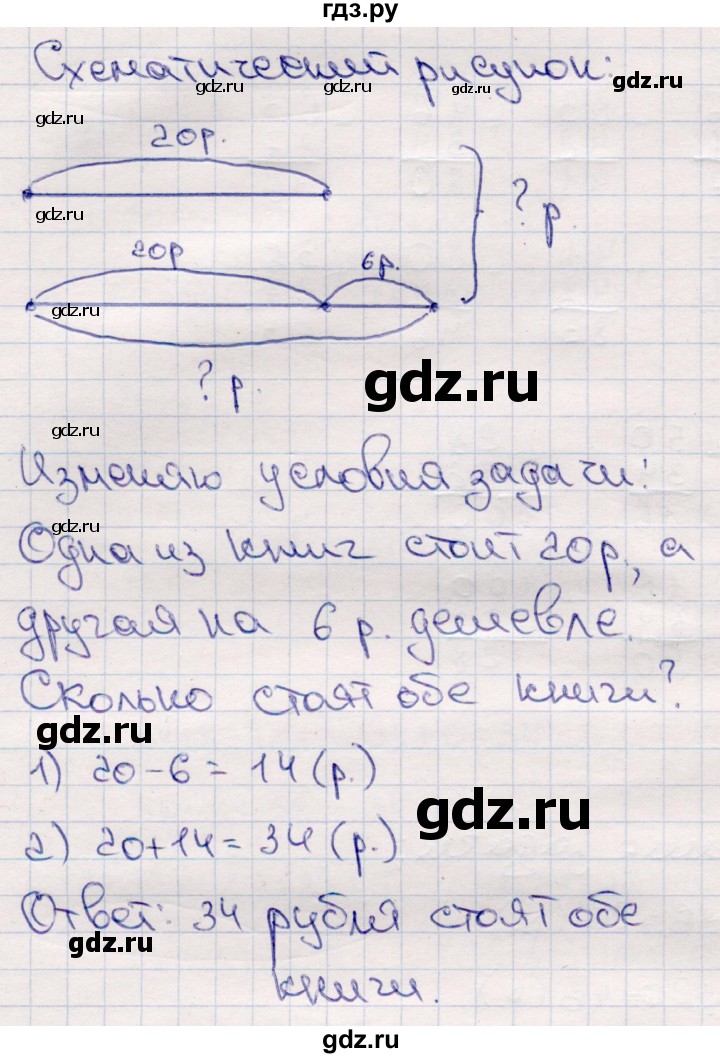 гдз.ру
Схематический рисунок:
gdz.ru gdz.ru gdz.ru gdz.ru
gdz.ru
20р.
gdz.ru
? р.
20р
6р.
gdz.ru
? р.
gdz.ru
gdz.ru
Изменяю условия задачи:
gdz.ru
Одна из книг стоит 20р., а
другая на 6 р. дешевле.
Сколько стоят обе книги?
gdz.ru
1) 20-6=14(р.)
gdz.ru
2) 20+14=34(р.)
Ответ: 34 рубля стоят обе
gdz.ru
книги.
gdz.ru